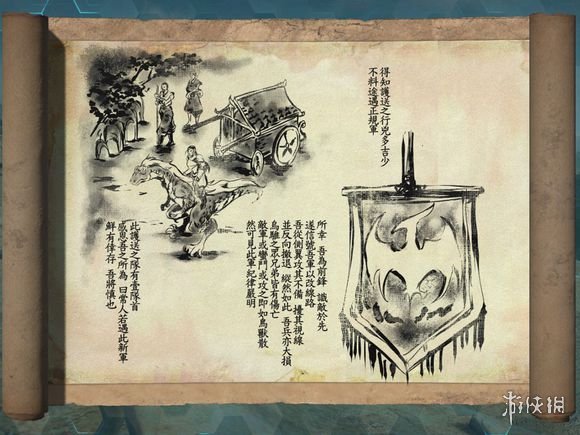 得知護送之行兇多吉少
不料途遇正規軍
所幸 吾為前鋒 識敵於先
遂信號吾軍以改線路
吾從側翼攻其不備 擾其視線
並反向撤退 縱然如此 吾兵亦大損
烏騅之眾兄弟皆有傷亡
敵軍或蠻鬥或攻之即如鳥獸散
然可見此軍紀律嚴明
此護送之隊有壹隊首
感恩吾之所為 曰常人若遇此新軍
鮮有倖存 吾將慎也
游侠网